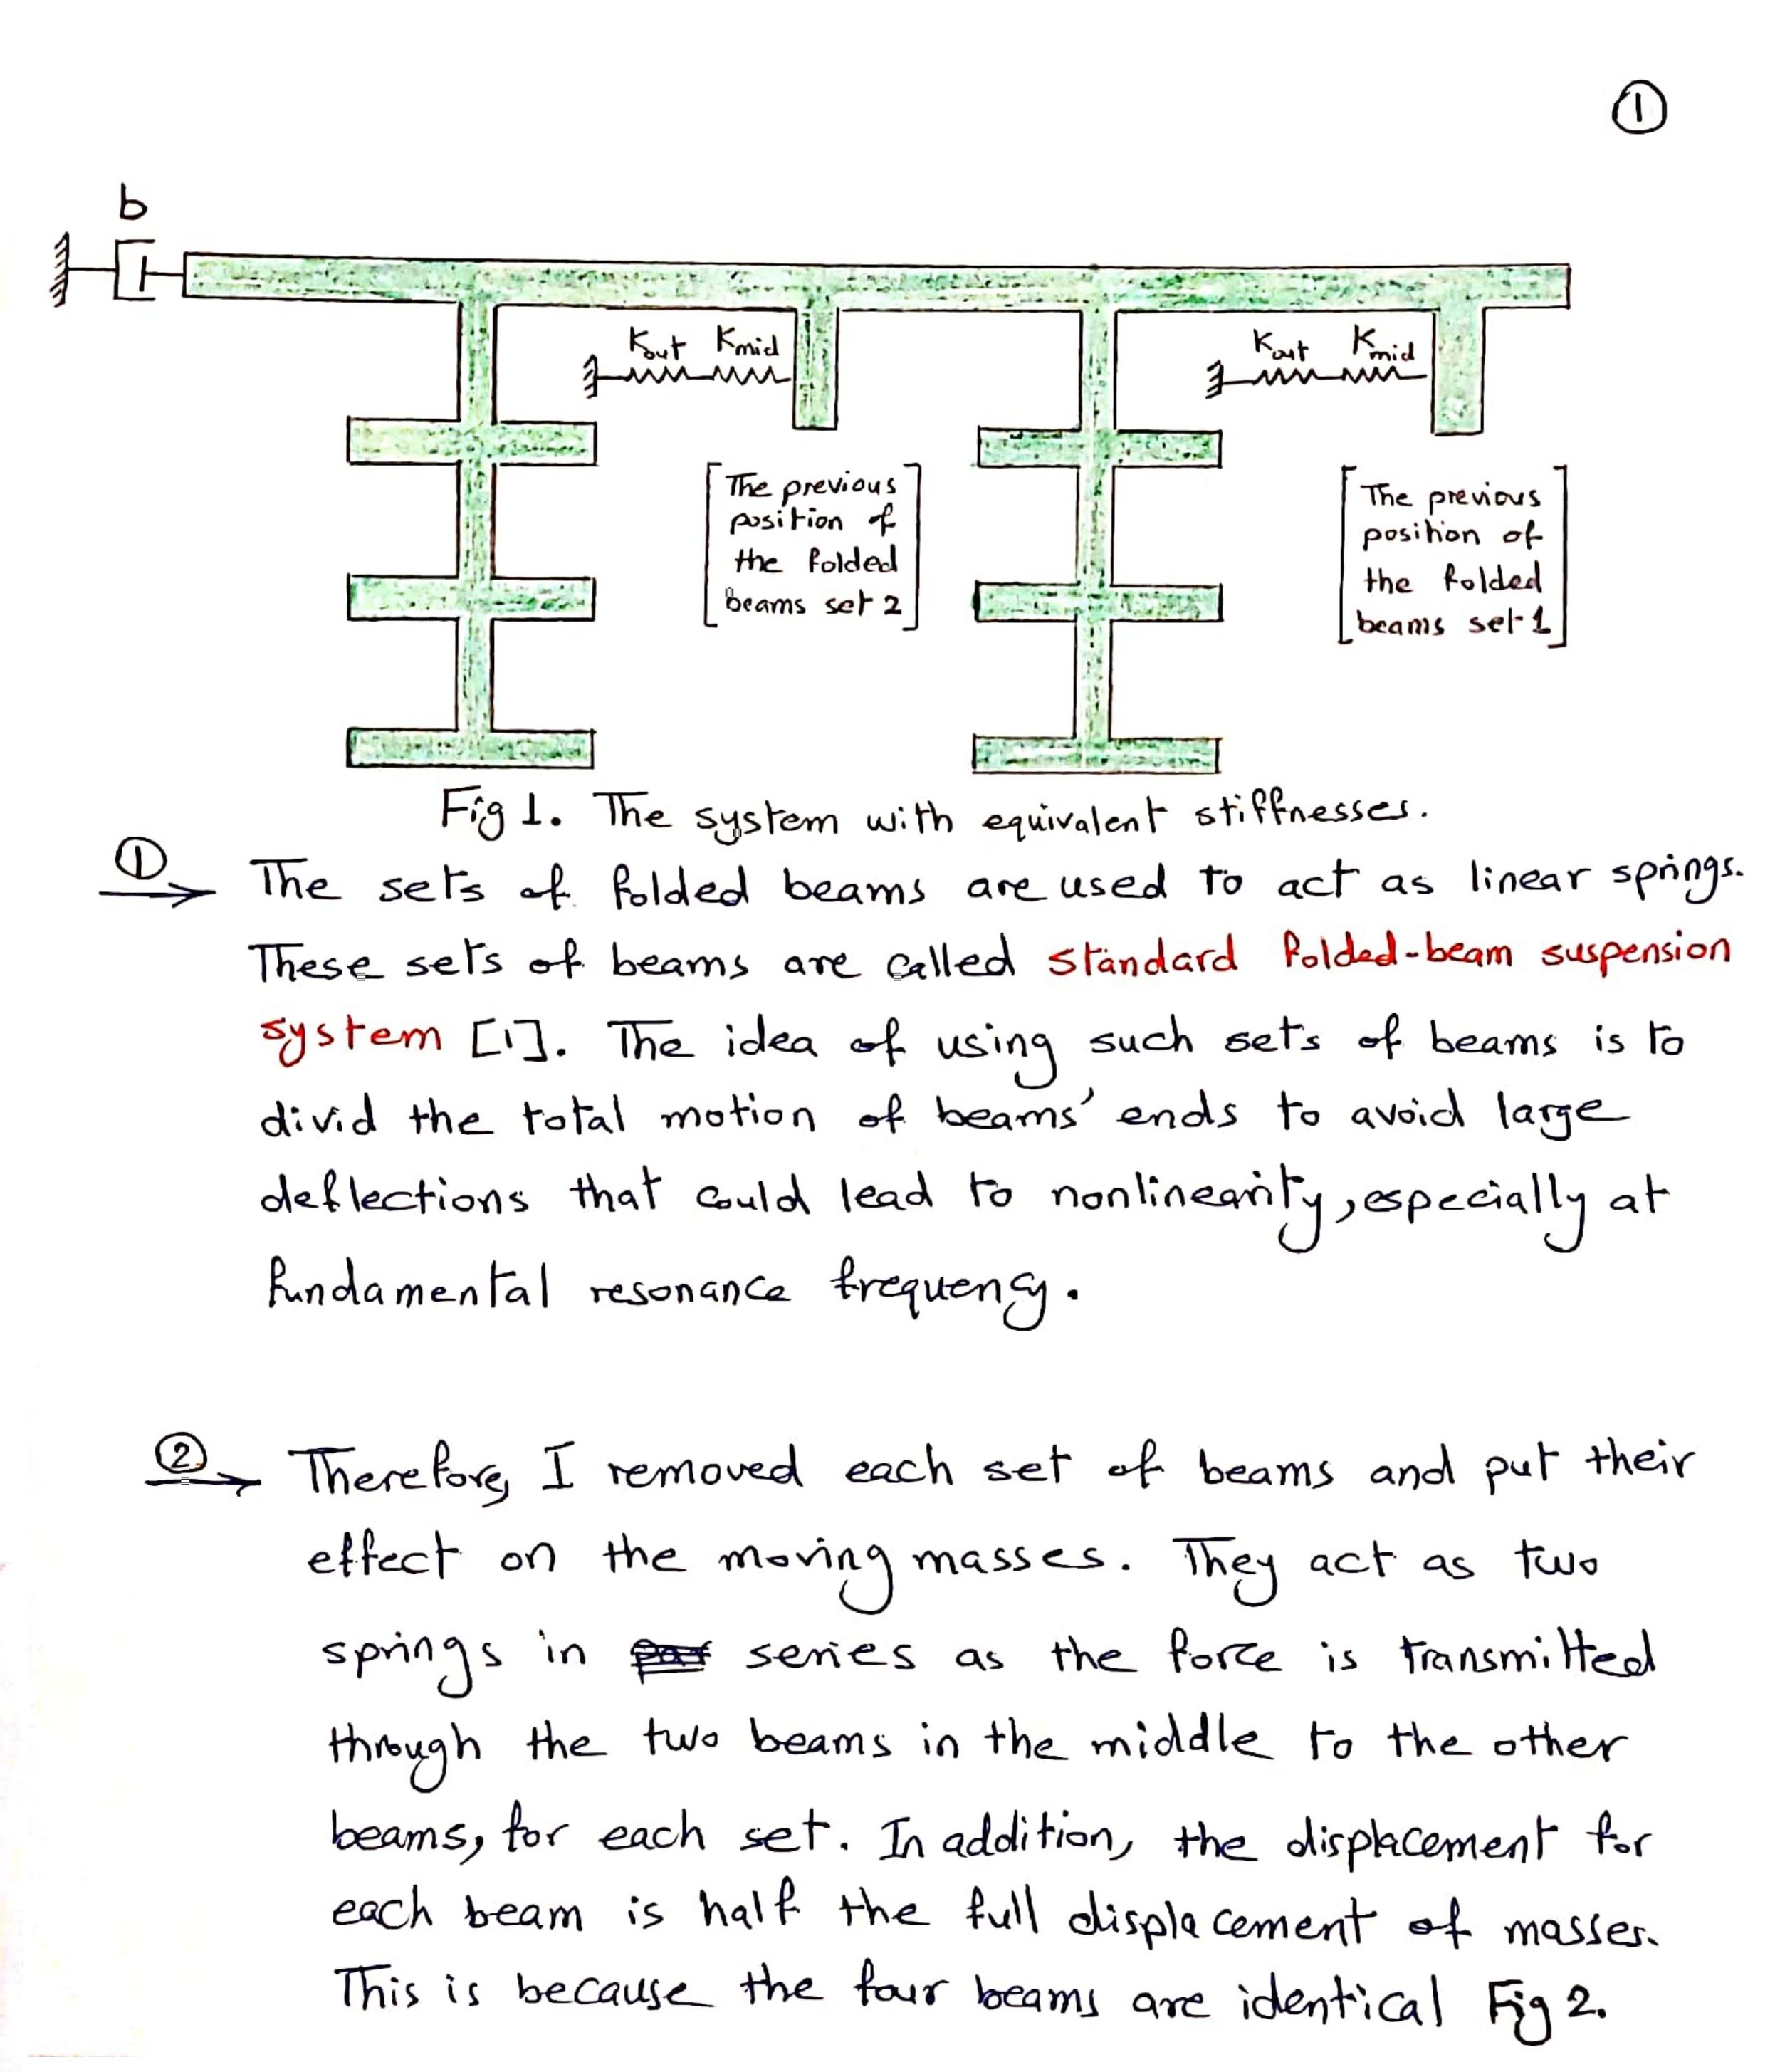 ①
b
Kout Kmid
Kout Kmid
The previous
position of
the folded
beams set 2
The previous
position of
the folded
beams set 1
Fig 1. The system with equivalent stiffnesses.
① The sets of folded beams are used to act as linear springs.
These sets of beams are called standard folded-beam suspension
system [1]. The idea of using such sets of beams is to
divid the total motion of beams' ends to avoid large
deflections that could lead to nonlinearity, especially at
fundamental resonance frequency.
② Therefore, I removed each set of beams and put their
effect on the moving masses. They act as two
springs in series as the force is transmitted
through the two beams in the middle to the other
beams, for each set. In addition, the displacement for
each beam is half the full displacement of masses.
This is because the four beams are identical Fig 2.